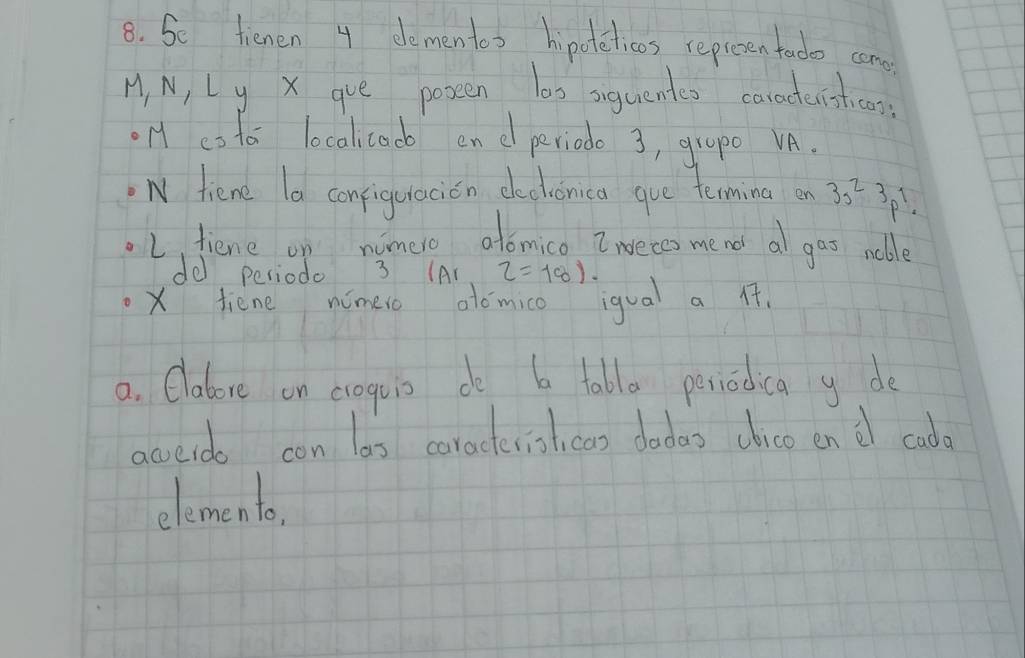 8. Se tienen 4 elementos hipotéticos representados como:
M, N, L y X que poseen las siguientes características:
• M está localizado en el periodo 3, grupo VA.
• N tiene la configuración electrónica que termina en 3s² 3p¹.
• L tiene un número atómico 2 veces menor al gas noble
del periodo 3 (Ar Z=18).
• X tiene número atómico igual a 17.
a. Elabore un croquis de la tabla periódica y de
acuerdo con las características dadas ubico en él cada
elemento.